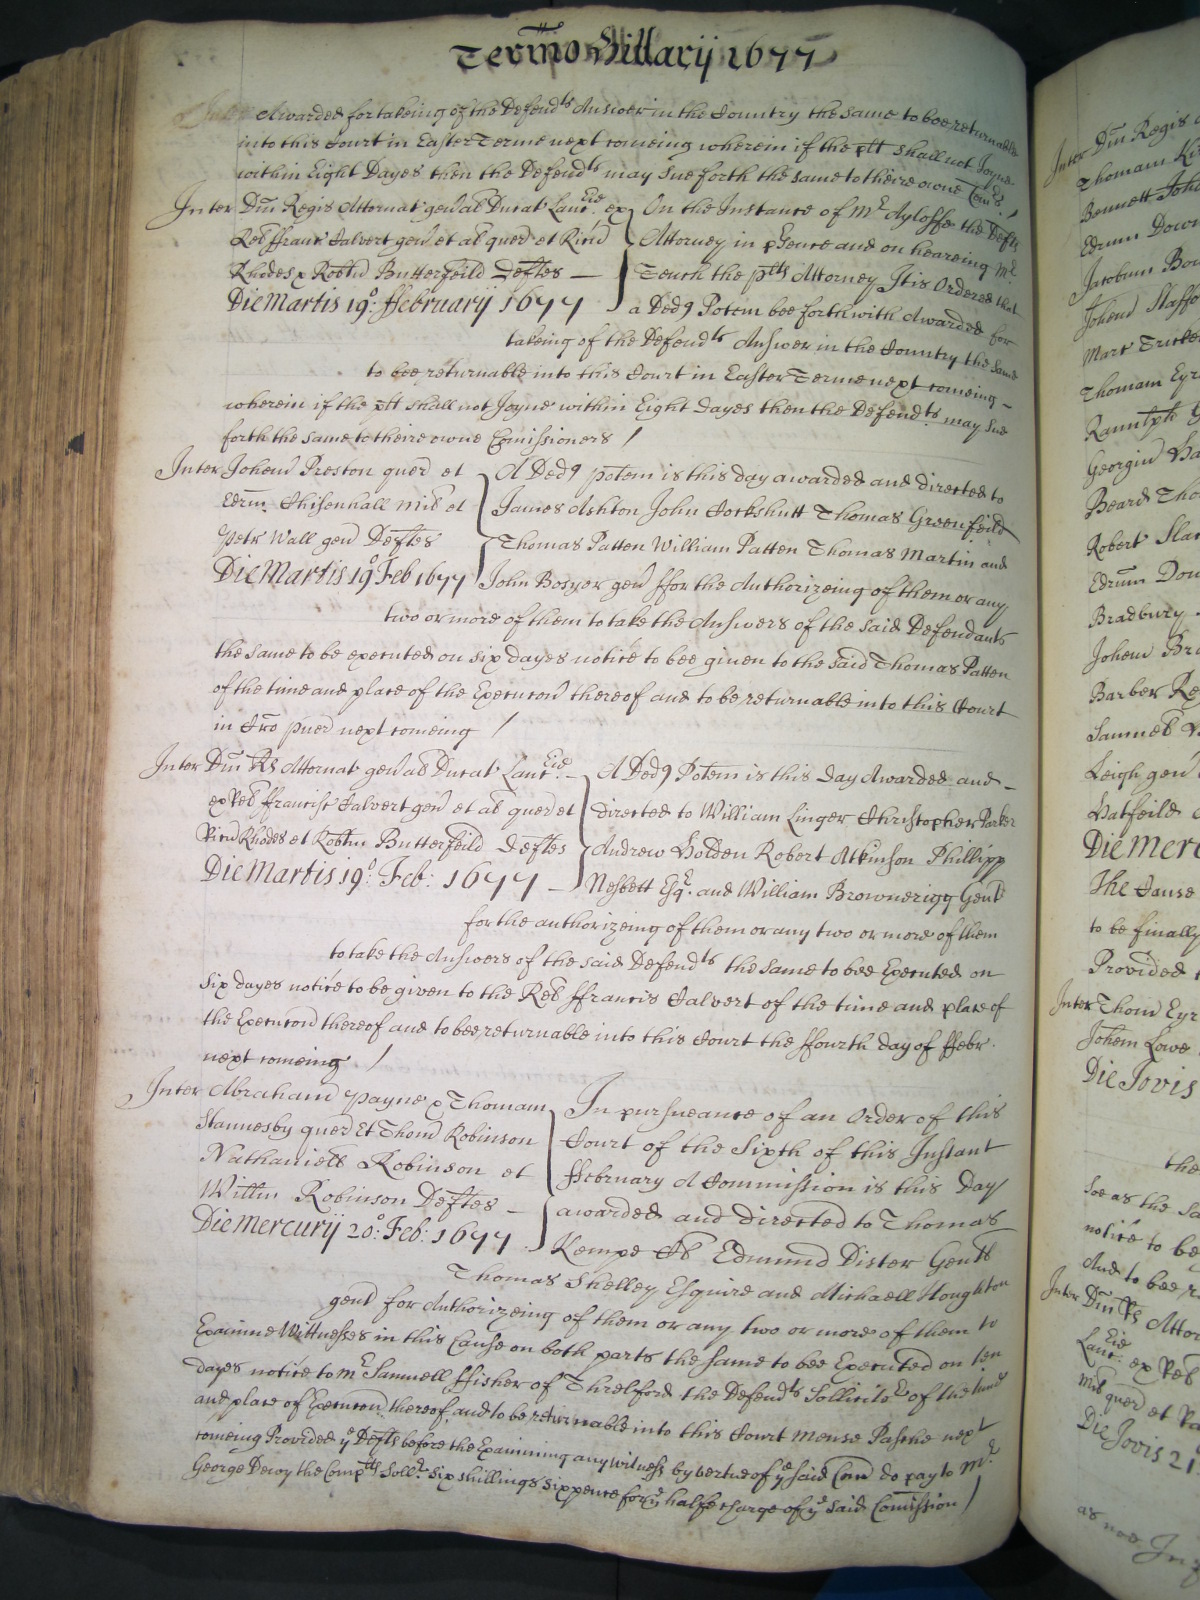 Termino Hillarij 1677
Awarded for takeing of the Defend:ts Answer in the Country the same to bee returnable
into this Court in Easter Terme next comeing wherein if the plt shall not Joyne
within Eight Dayes then the Defend:ts may sue forth the same to theire owne Com:rs /
Inter Dnu Regis Attornat genal Ducat Lanc:Eid ex On the Instance of Mr Ayloffe the Defts
Rel ffranc Calvert gen et al quer et Ricu Attorney in psence and on heareing Mr
Rhodes & Robtu Butterfeild Deftes — Teuch the plts Attorney It is Ordered that
Die Martis 19o: ffebruarij 1677 a Ded9 Potem bee forthwith Awarded for
takeing of the Defend:ts Answer in the Country the same
to bee returnable into this Court in Easter Terme next comeing –
wherein if the plt shall not Joyne within Eight dayes then the Defend:ts may sue
forth the same to theire owne Comissioners /
Inter Johem Preston quer et A Ded9 potem is this day awarded and directed to
Edrm Chisenhall mil et James Ashton John Cockshutt Thomas Greenfeild
Petr Wall gen Deftes Thomas Patten William Patten Thomas Martin and
Die Martis 19o Feb 1677 John Bosyer gen ffor the Authorizeing of them or any
two or more of them to take the Answers of the said Defendants
the same to be executed on six dayes notice to bee given to the said Thomas Patten
of the time and place of the Execucon thereof and to be returnable into this Court
in Cro pur next comeing /
Inter Dnu Rs Attornat genal Ducat Lanc:Eid – A Ded9 Potem is this day Awarded and –
ex Rel ffrancisc Calvert gen et al quer et directed to William Linger Christopher Parker
Ricu Rhodes et Robtu Butterfeild Deftes Andrew Holden Robert Atkinson Phillipp
Die Martis 19o: Feb: 1677 – Nesbett Esqr. and William Brownerigg Gent
for the authorizeing of them or any two or more of them
to take the Answers of the said Defend:ts the same to bee Executed on
six dayes notice to be given to the Rel ffrancis Calvert of the time and place of
the Execucon thereof and to bee returnable into this Court the ffourth day of ffebr.
next comeing /
Inter Abraham Payne & Thomam In pursueance of an Order of this
Stannesby quer Et Thom Robinson Court of the Sixth of this Instant
Nathaniell Robinson et ffebruary A Commission is this Day
Willm Robinson Deftes – awarded and directed to Thomas
Die Mercurij 20o: Feb: 1677 Kempe Edmund Dister Gents
Thomas Shelley Esquire and Michaell Houghton
gent for Authorizeing of them or any two or more of them to
Examine Wittnesses in this Cause on both parts the same to bee Executed on ten
dayes notice to Mr Samuell ffisher of Thelford the Defend:ts Sollicitor of the time
and place of Execucon thereof and to be returnable into this Court Mense Pasche next
comeing Provided ye Defts before the Examining any witness by vertue of ye said Com do pay to Mr
George Dewy the Complts Sollr Six shillings six pence for ye halfe charge of ye said Comission /
Inter Dnu Regis
Bennett
Jacobum
Thomam Eyr
Beard Tho
Robert
Bradbury
Barber
Leigh gen
Hatfeild
Die Merc
The Cause
to be finally
Provided
Inter Thom Eyr
Johem Lowe
Die Jovis
the
Soe as the
notice to be
And to bee
Inter Dnu Rs Attor
Lanc:Eid ex Rel
mil quer et
Die Jovis 21